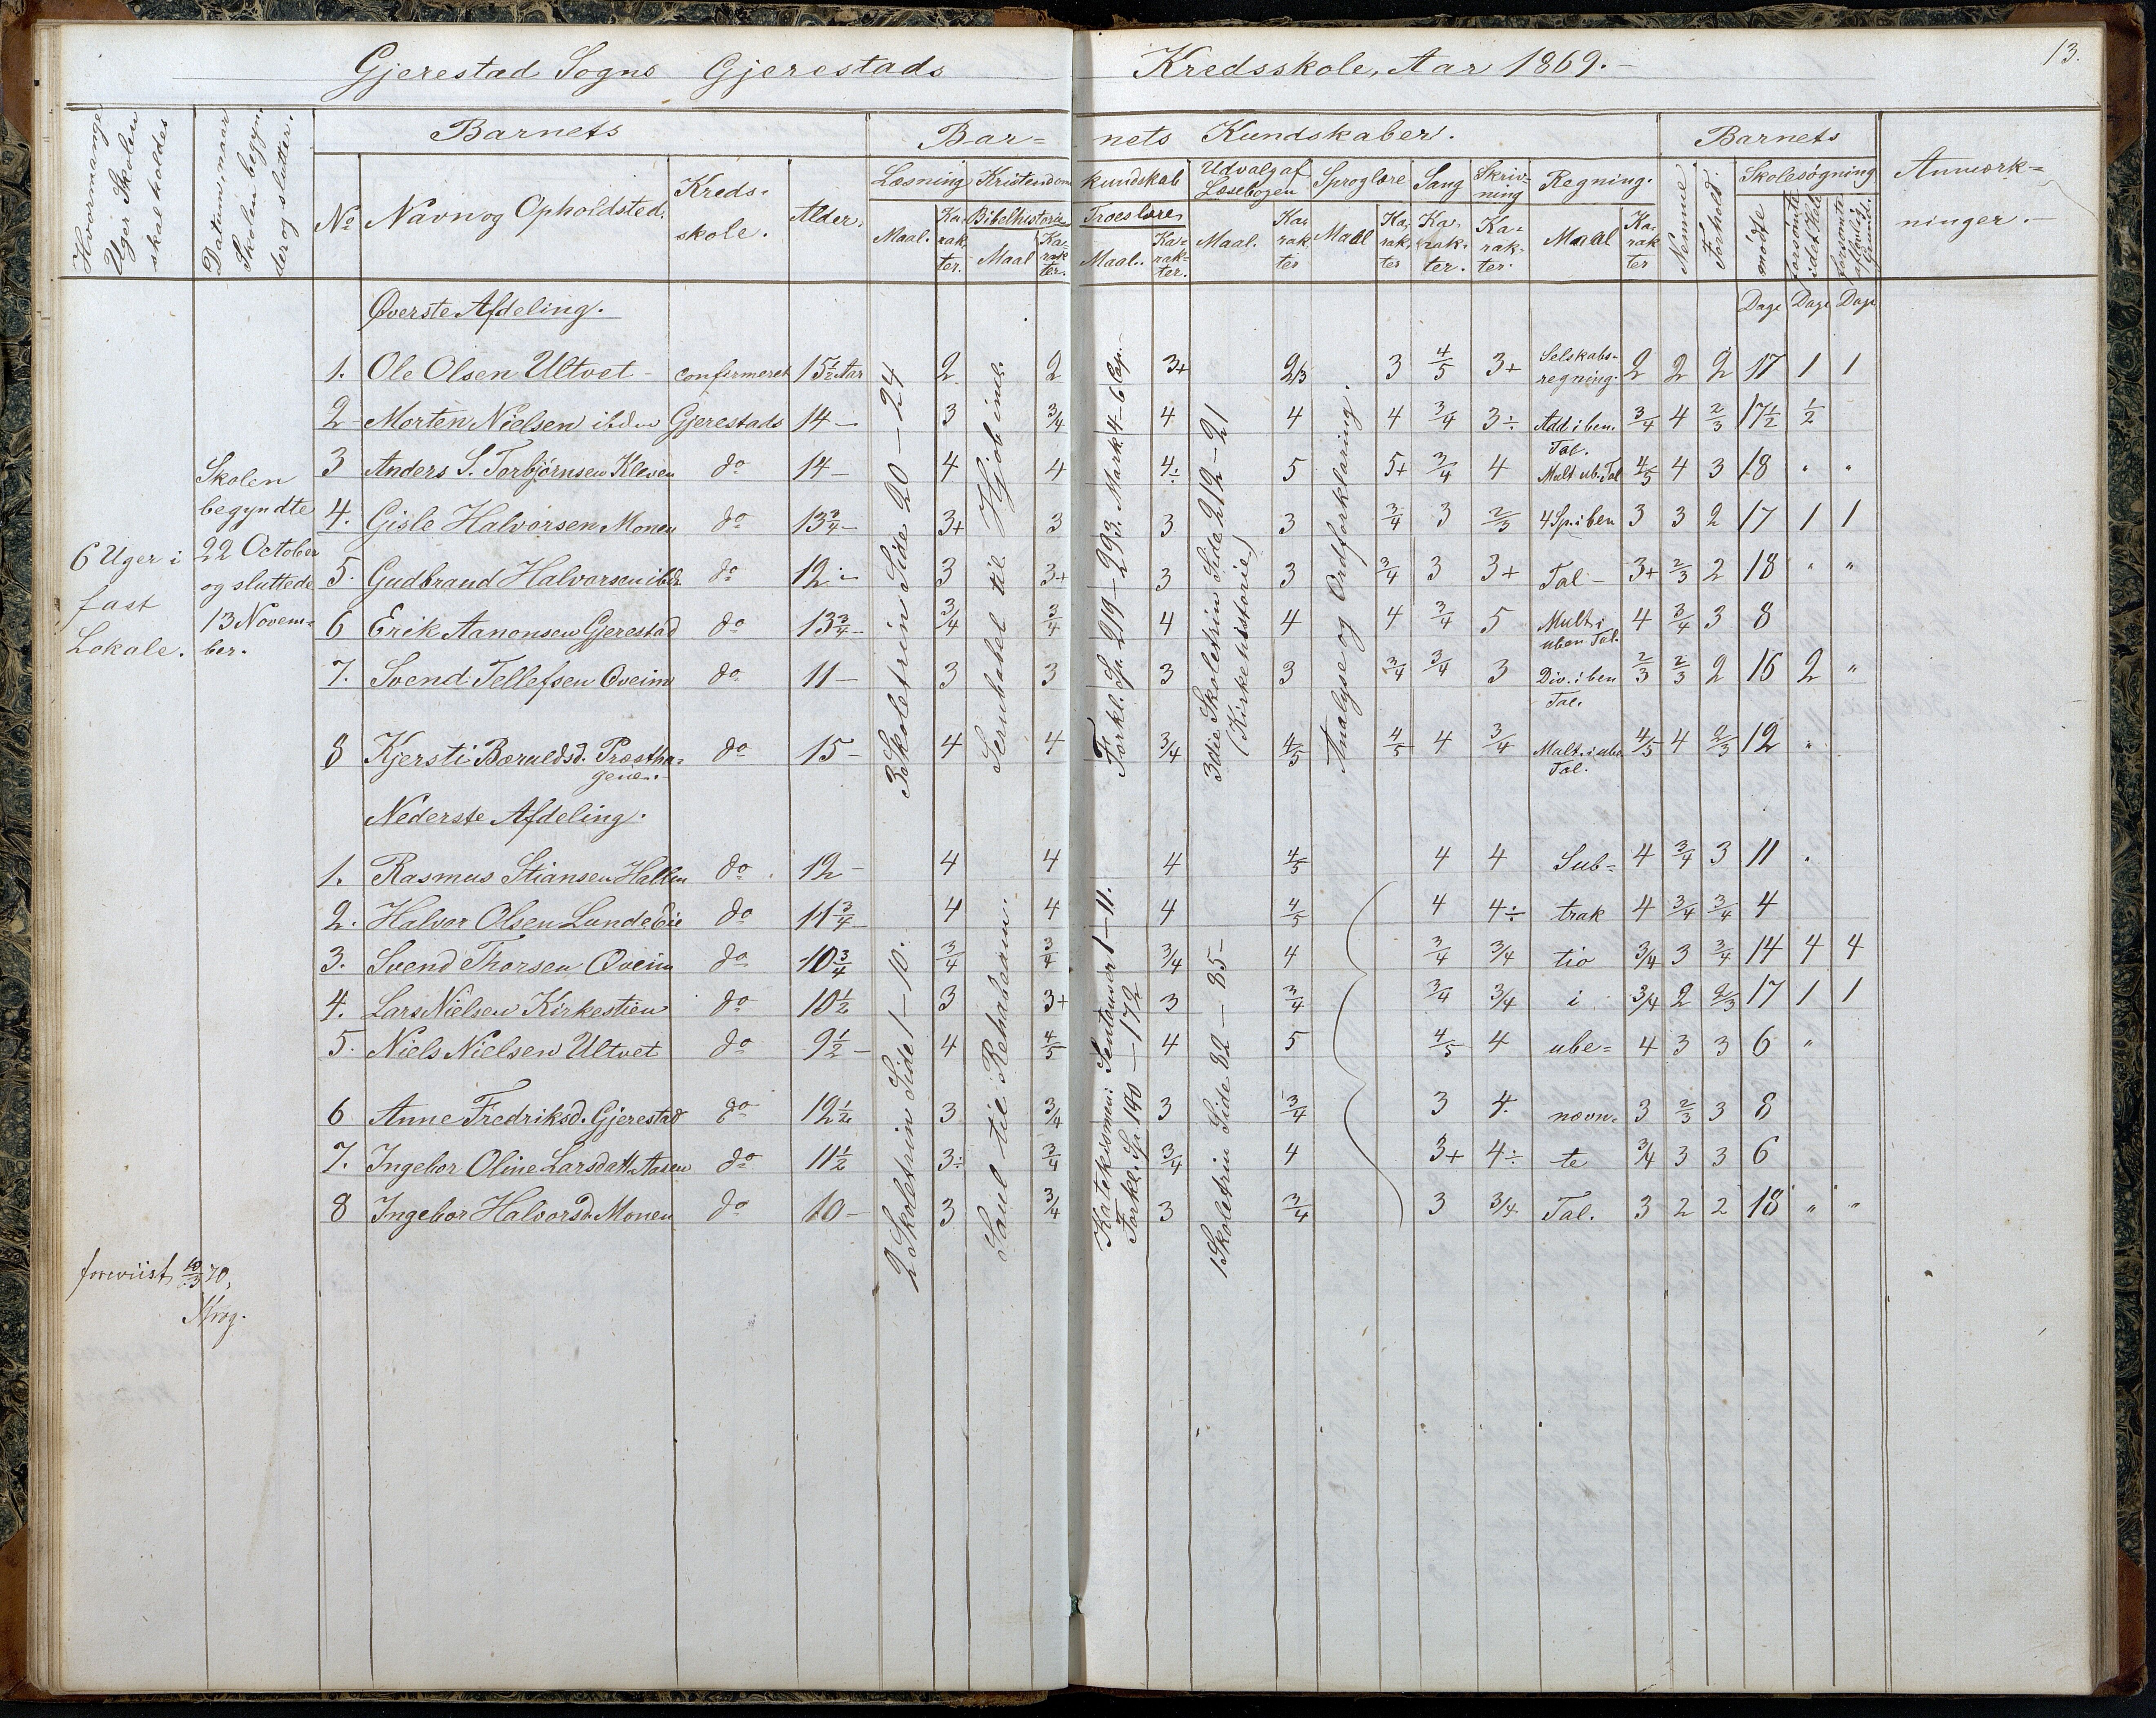 13.
Gjerestad Sogns Gjerestads Kredsskole, Aar 1869.
Hvormange Uger Skolen skal holdes
Datum, naar Skolen begynder og slutter.
Barnets
Barnets Kundskaber.
Barnets
Anmærkninger.
No
Navn og Opholdsted.
Kredsskole.
Alder.
Læsning
Kristendomskundskab
Udvalg af Læsebogen
Sproglære
Sang
Skrivning
Regning.
Nemme
Forhold.
Skolesøgning
Maal. Karakter.
Bibelhistorie Maal Karakter.
Troeslære Maal. Karakter.
Maal. Karakter
Maal Karakter
Karakter.
Karakter.
Maal Karakter
mødte
forsømte i det Hele
forsømte af lovlig Grund.
Dage Dage Dage
6 Uger i fast Lokale.
Skolen begyndte 22 October og sluttede 13 November.
Øverste Afdeling.
1. Ole Olsen Ultvet confirmeret 15½ Aar 2 2 3+ 2/3 3 4/5 3+ Selskabsregning. 2 2 2 17 1 1
2 Morten Nielsen ibdm Gjerestads 14 – 3 3/4 4 4 4 3/4 3÷ Add i ben. Tal. 3/4 4 2/3 17½ ½
3 Anders S. Torbjørnsen Kleven do 14 – 4 4 4÷ 5 5+ 3/4 4 Mult ub. Tal 4/5 4 3 18 " "
4. Gisle Halvorsen Monen do 13¾ – 3+ 3 3 3 3/4 3 2/3 4 Sp. i ben 3 3 2 17 1 1
5. Gudbrand Halvorsen ibd. do 12 – 3 3+ 3 3 3/4 3 3+ Tal – 3+ 2/3 2 18 " "
6 Erik Aanonsen Gjerestad do 13¾ – 3/4 3/4 4 4 4 3/4 5 Mult i uben Tal. 4 3/4 3 8
7. Svend Tellefsen Øveim do 11 – 3 3 3 3 3/4 3/4 3 Div. i ben Tal. 2/3 2/3 2 16 2 "
8 Kjersti Boruldsd. Præsthagene. do 15 – 4 4 3/4 4/5 4/5 4 3/4 Mult. i ube Tal. 4/5 4 2/3 12 "
3 Skoletrin Side 20 – 24
Sernbabel til Hjob incl.
Forkl. Sp. 219 – 293. Mark. 4–6 Cp.
3die Skoletrin Side 219 – 21
(Kirkehistorie)
Analyse og Ordforklaring.
Nederste Afdeling.
1. Rasmus Stiansen Hallen do 12 – 4 4 4 4/5 4 4 Sub= 4 3/4 3 11 "
2. Halvor Olsen Lunde Eie do 11¾ – 4 4 4 4/5 4 4÷ trak 4 3/4 3/4 4
3. Svend Thorsen Øveim do 10¾ 3/4 3/4 3/4 4 3/4 3/4 tio 3/4 3 3/4 14 4 4
4. Lars Nielsen Kirkestien do 10½ 3 3+ 3 3/4 3/4 3/4 i 3/4 2 2/3 17 1 1
5. Niels Nielsen Ultvet do 9½ – 4 4/5 4 5 4/5 4 ube= 4 3 3 6 "
6 Anne Fredriksd. Gjerestad do 12½ 3 3/4 3 3/4 3 4. nævn= 3 2/3 3 8
7. Ingebor Oline Larsdatt. Aasen do 11½ 3÷ 3/4 3/4 4 3+ 4÷ te 3/4 3 3 6
8 Ingebor Halvorsd. Monen do 10 – 3 3/4 3 3/4 3 3/4 Tal. 3 2 2 18 " "
2 Skoletrin Side 1 – 10.
Saul til Rehabeam.
Katekismen: Sentenser 1 – 11.
Forkl. Sp. 140 – 172
1 Skoletrin Side 82 – 85
foreviist 10/3 70,
Krog.